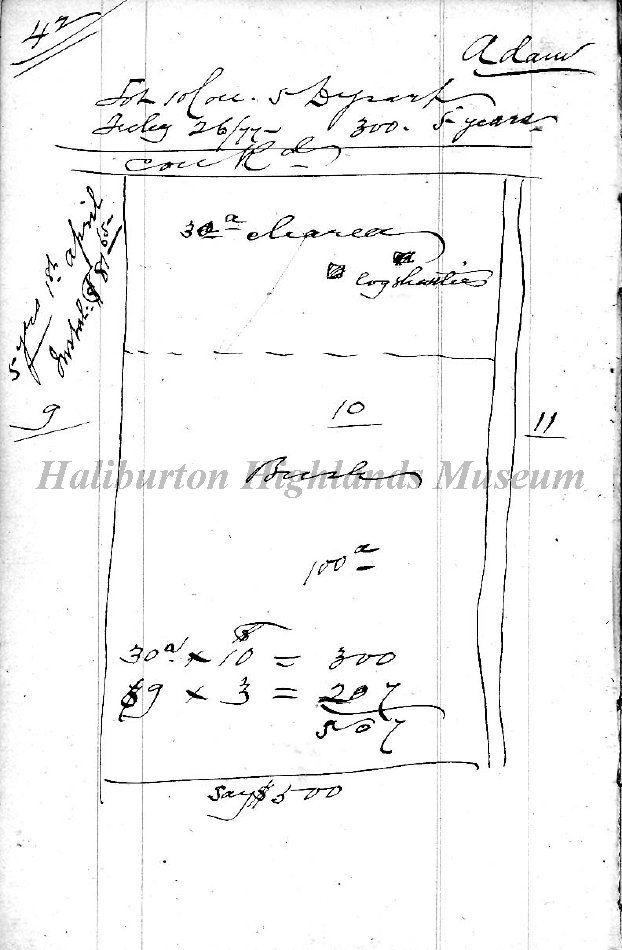 42
Adam
Lot 10 Con. 5 Dysart
July 26/77 - 300. 5 years
Con Rd
30a cleared
log shanties
5 yrs 1st April
Instal: $81.65
9
10
11
Haliburton Highlands Museum
Bush
100a
30a x 10 = 300
69 x 3 = 207
507
Say $500